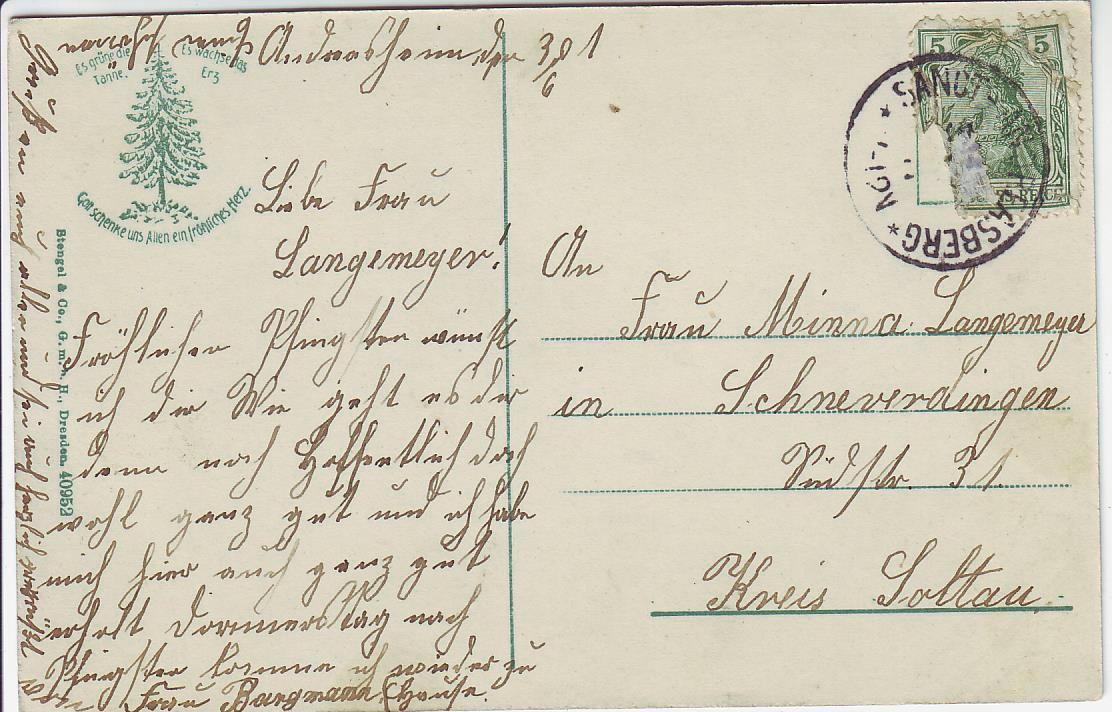 Es grüne die
Tanne.
Es wachse das
Erz
Gott schenke uns Allen ein fröhliches Herz.
Stengel & Co., G. m. b. H., Dresden 40952
Andreasheim den
Liebe Frau
Langemeyer!
Fröhlichen Pfingsten wünscht
ich dir Wie geht es dir
denn noch Hoffentlich doch
wohl ganz gut und ich habe
mich hier auch ganz gut
erholt Donnerstag nach
Pfingsten komme ich wieder zu
Frau Bargmann Hause.
5 5
SANCT ANDREASBERG
An
Frau Minna Langemeyer
in Schneverdingen
Südstr. 31.
Kreis Soltau.